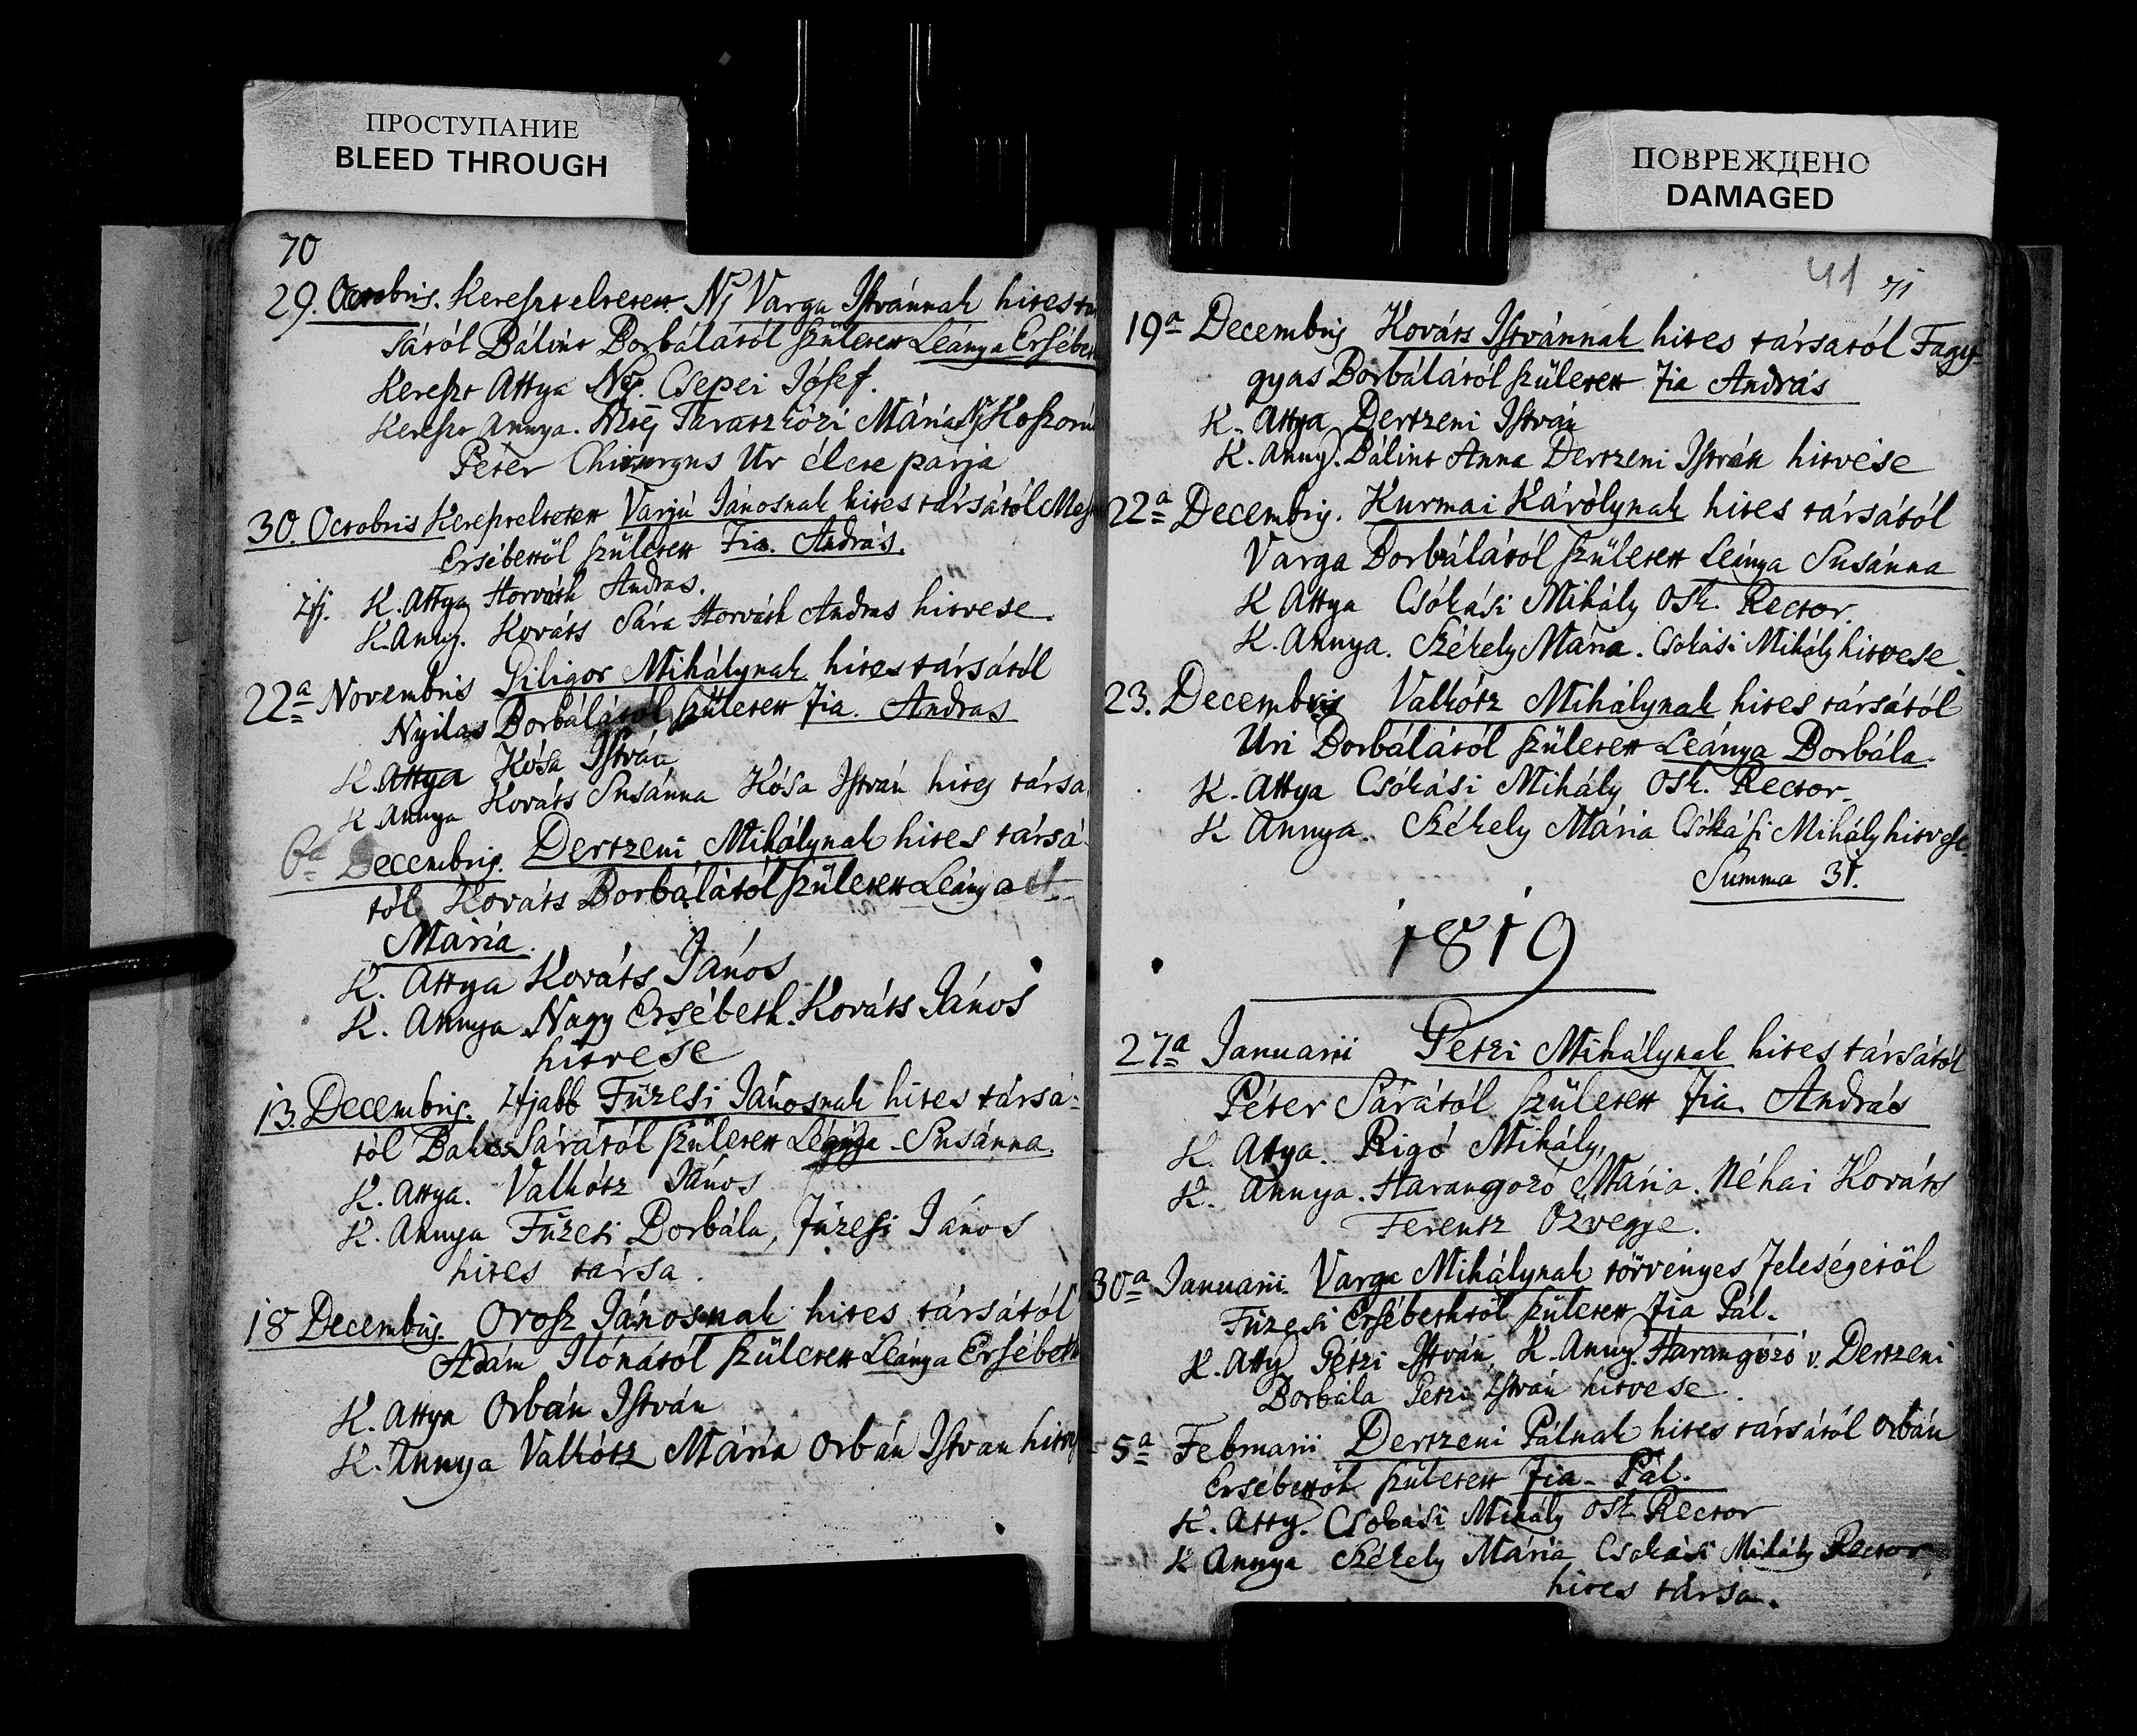 ПРОСТУПАНИЕ
BLEED THROUGH
70
29. Octobris. Kereszteltetett. Nș Varga Istvánnak hites tár
sától Bálint Borbálától született Leánya Ersébet
Kereszt Attya Ns. Csepei Jósef.
Kereszt Annya. Taraszközi Mária Koszorú
Péter Chirurgus Ur élete párja
30. Octobris Kereszteltetett Varjú Jánosnak hites társától
Ersébettöl született Fia. András.
Ifj. K. Attya Horváth Andras.
K. Anny. Kováts Sára Horváth Andras hitvese.
22a Novembris Giligor Mihálynak hites társától
Nyilas Borbálától született Fia. Andras
K. Attya Kósa István
K Annya Kováts Susánna Kósa István hites társa
6a Decembris. Dertzeni Mihálynak hites társá-
tól Kováts Borbálától született Leánya
Mária.
K. Attya Kováts János
K. Annya Nagy Ersébeth. Kováts János
hitvese
13. Decembris. Ifjabb Füzesi Jánosnak hites társá-
tól Sárától született Leánya Susánna.
K. Attya. Valkótz János
K. Annya Füzesi Borbála, Füzesi János
hites társa.
18 Decembris. Orosz Jánosnak hites társától
Adám Ilónától született Leánya Ersébeth
K. Attya Orbán István
K. Annya Valkótz Mária Orbán Istvan hitve
ПОВРЕЖДЕНО
DAMAGED
41 71
19a Decembris Kováts Istvánnak hites társatól Fagy-
gyas Borbálától született Fia András
K. Attya Dertzeni István
K. Anny. Bálint Anna Dertzeni István hitvése
22a Decembris. Kurmai Károlynak hites társától
Varga Borbálától született Leánya Susánna
K Attya Csókási Mihály Osk. Rector.
K. Annya. Székely Mária. Csokási Mihály hitvese.
23. Decembris Valkótz Mihálynak hites társától
Uri Borbálától született Leánya Borbála.
K. Attya Csókási Mihály Osk. Rector.
K Annya. Székely Mária Csókási Mihály hitvese.
Summa 31.
1819
27a Januarii Petzi Mihálynak hites társától
Péter Sárától született Fia. András
K. Attya. Rigó Mihály,
K. Annya. Harangozó Mária. Néhai Kováts
Ferentz Özvegye.
30a Januarii Varga Mihálynak törvényes Feleségétöl
Füzesi Ersébethtöl született Fia Pál.
K. Atty Petzi István, K. Anny. Harangózó v. Dertzeni
Borbála Petzi István hitvese.
5a Februarii Dertzeni Pálnak hites társától Orbán
Ersébettöl született Fia. Pál.
K. Atty. Csokási Mihály Osk. Rector
K Annya Székely Mária Csokási Mihály Rector
hites társa.